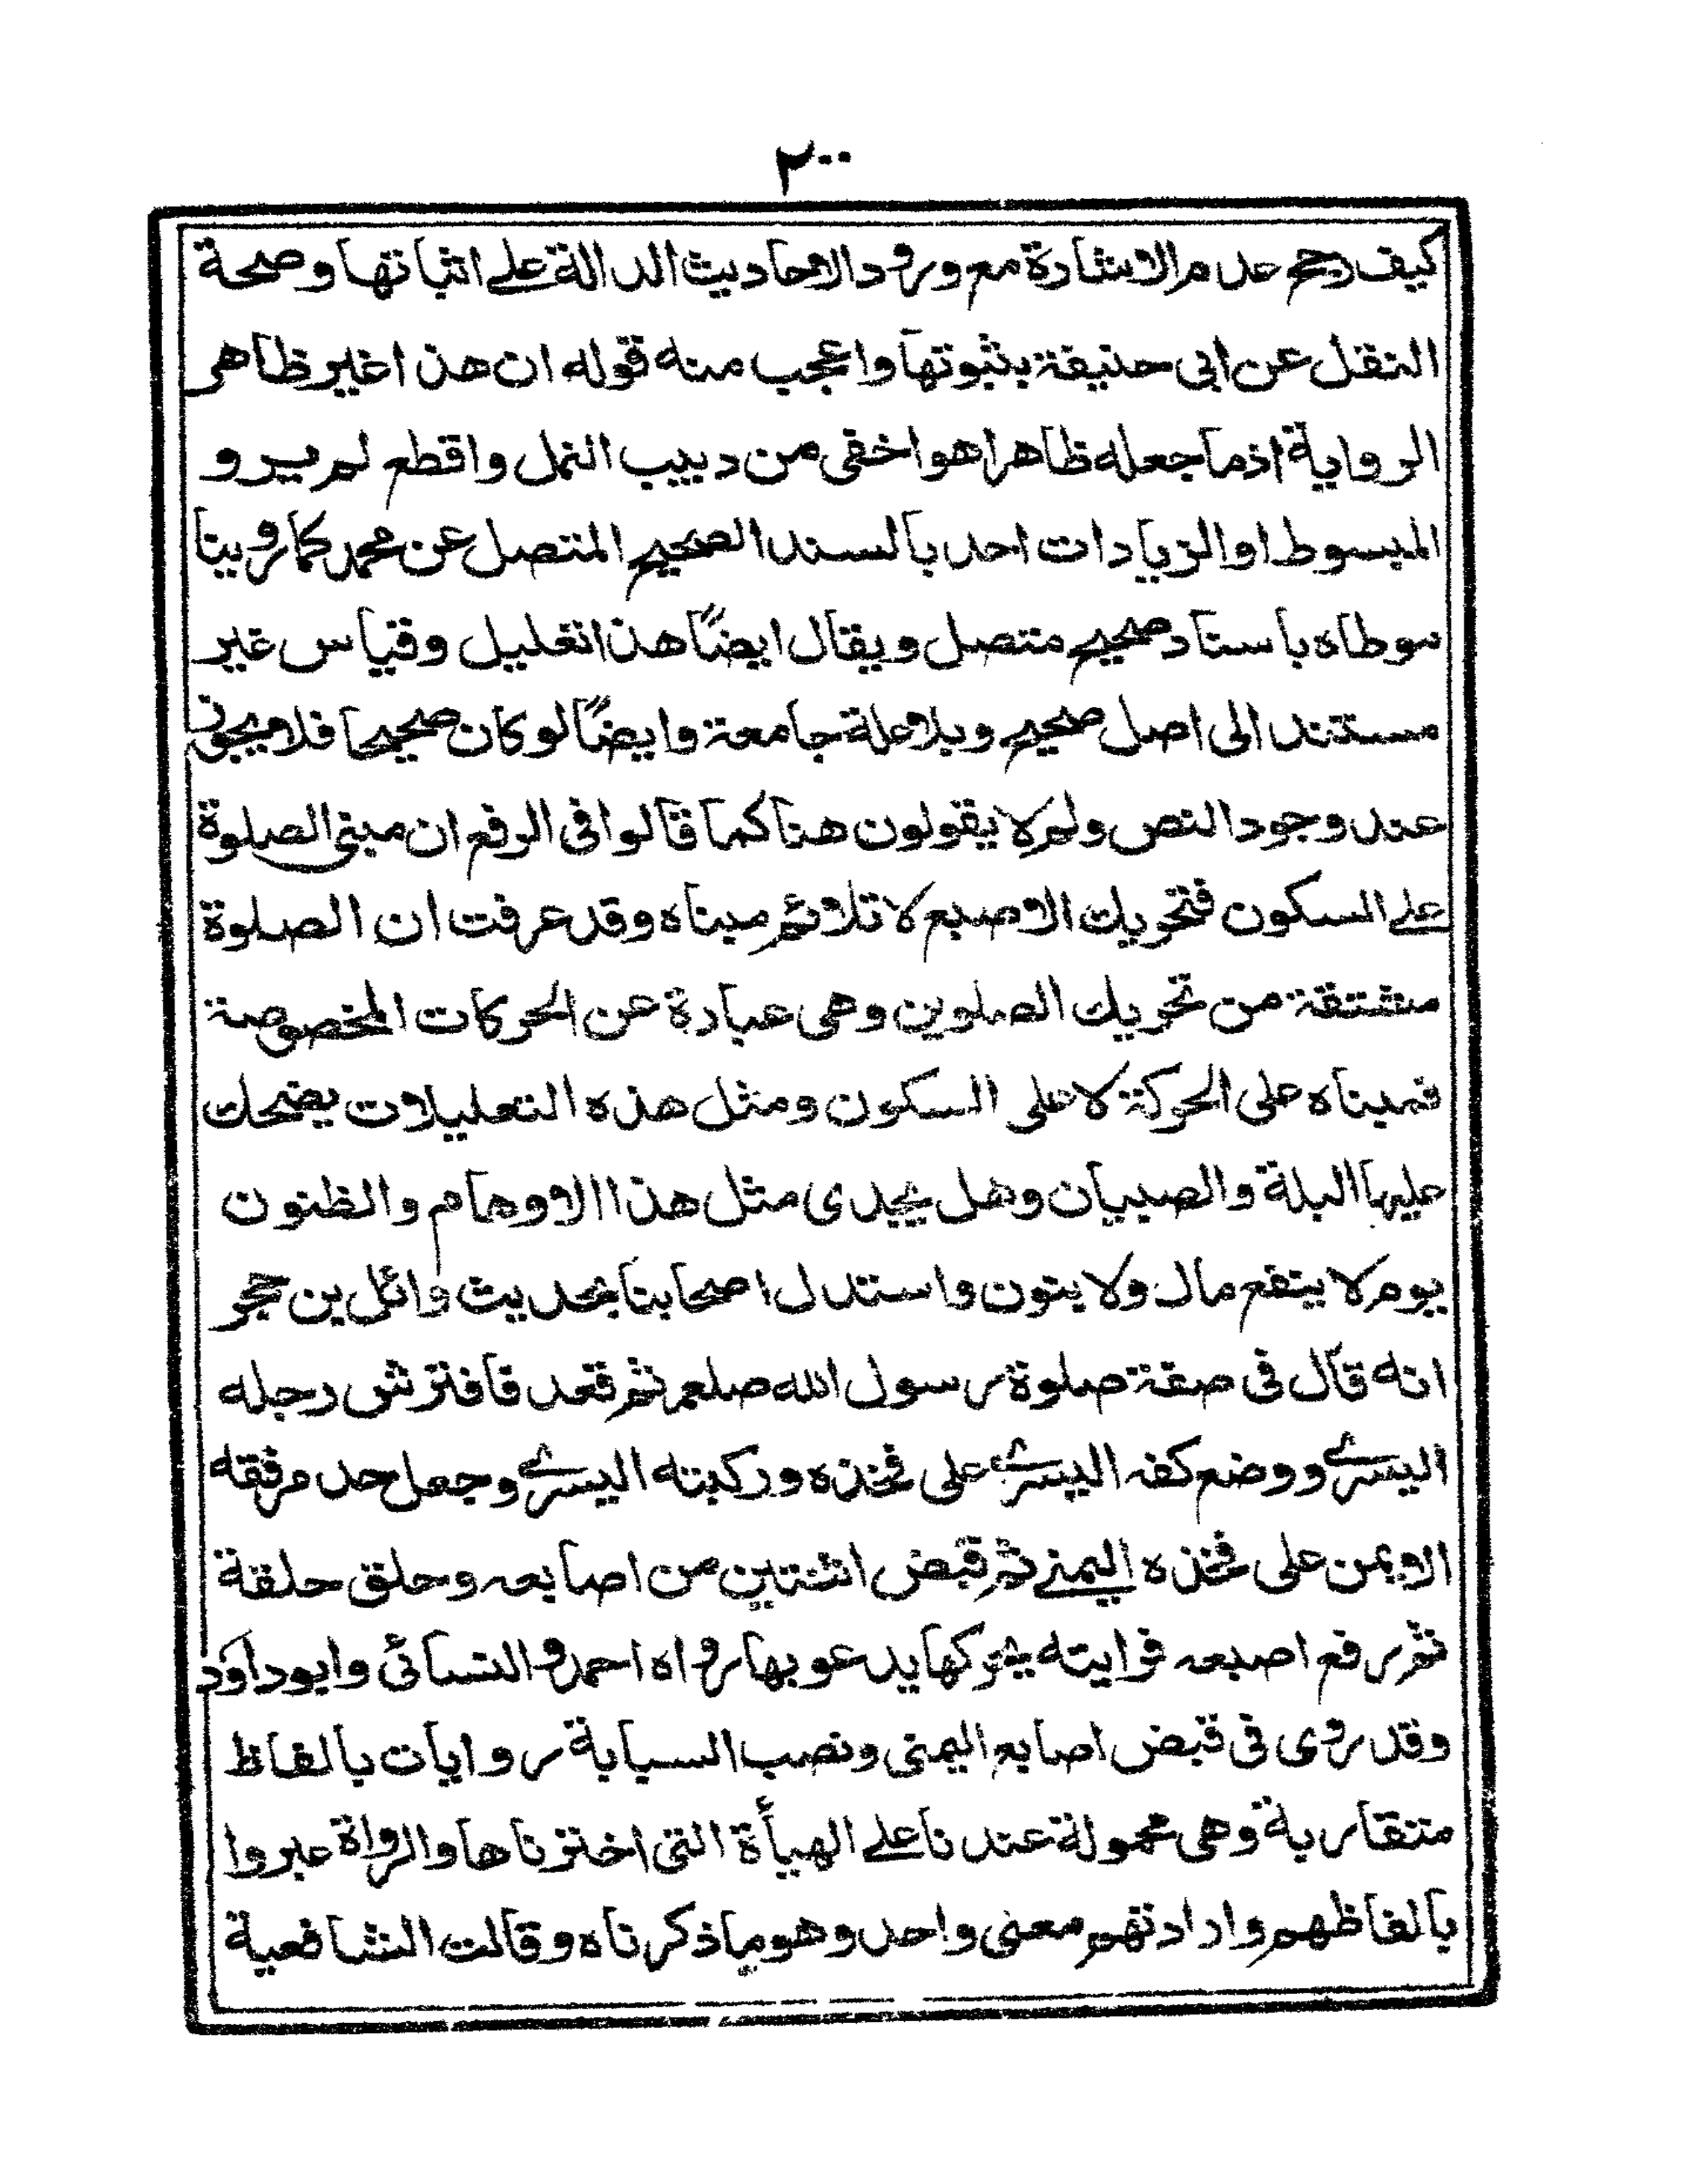 ٢٠٠
كيف رجح عدم الاشارة مع ورود الاحاديث الدالة على اثباتها وصحة
النقل عن ابى حنيفة بثبوتها واعجب منه قوله ان هذا غير ظاهر
الرواية اذ ما جعله ظاهرا هو اخفى من دبيب النمل واقطع لم يرو
المبسوط او الزيادات احد بالسند الصحيح المتصل عن محمد كما روينا
موطاه باسناد صحيح متصل ويقال ايضًا هذا تعليل وقياس غير
مستند الى اصل صحيح وبلا علة جامعة وايضًا لو كان صحيحا فلا يجوز
عند وجود النص ولم لا يقولون هنا كما قالوا فى الرفع ان مبنى الصلوة
على السكون فتحريك الاصبع لا تلائم مبناه وقد عرفت ان الصلوة
مشتقة من تحريك الصلوين وهى عبارة عن الحركات المخصوصة
فمبناه على الحركة لا على السكون ومثل هذه التعليلات يضحك
عليها البلة والصبيان وهل يجدى مثل هذا الاوهام والظنون
يوم لا ينفع مال ولا بنون واستدل اصحابنا بحديث وائل بن حجر
انه قال فى صفة صلوة رسول الله صلعم ثم قعد فافترش رجله
اليسرى ووضع كفه اليسرى على فخذه وركبته اليسرى وجعل حد مرفقه
الايمن على فخذه اليمنى ثم قبض اثنتين من اصابعه وحلق حلقة
ثم رفع اصبعه فرايته يحركها يدعو بها رواه احمد والنسائى وابوداود
وقد روى فى قبض اصابع اليمنى ونصب السبابة روايات بالفاظ
متقاربة وهى محمولة عندنا على الهيأة التى اخترناها والرواة عبروا
بالفاظهم وارادتهم معنى واحد وهو ما ذكرناه وقالت الشافعية